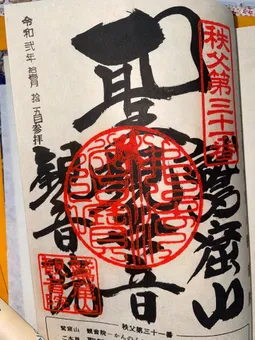 秩父第三十一番
鷲窟山
聖観音
観音院
令和弐年
五日参拝
秩父第三十一番
鷲窟山 観音院―かんのん
ご本尊